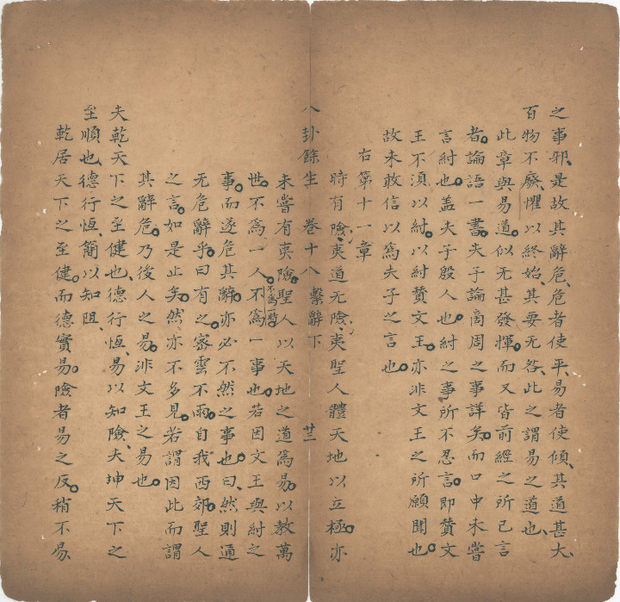 之事邪是故其辭危危者使平易者使傾其道甚大
百物不廢懼以終始其要无咎此之謂易之道也
此章與易道似无甚發揮而又皆前經之所已言
者論語一書夫子論商周之事詳矣而口中未嘗
言紂也蓋夫子殷人也紂之事所不忍言即贊文
王不須以紂以紂贊文王亦非文王之所願聞也
故未敢信以爲夫子之言也
右第十一章
時有險夷道无險夷聖人體天地以立極亦
八卦餘生 卷十八 繫辭下 廿三
未嘗有夷險聖人以天地之道爲易以教萬
世不爲一人不爲一時不爲一事也若因文王與紂之
事而遂危其辭亦必不然之事也曰然則通
无危辭乎曰有之密雲不雨自我西郊聖人
之言如是止矣然亦不多見若謂因此而謂
其辭危乃後人之易非文王之易也
夫乾天下之至健也德行恆易以知險夫坤天下之
至順也德行恆簡以知阻
乾居天下之至健而德實易險者易之反稍不易